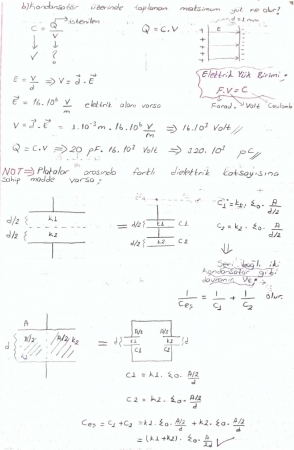 b) Kondansatör üzerinde toplanan maksimum yük ne olur?
C = Q/V → istenilen
Q = C.V
d = 1 mm
E = V/d ⇒ V = d. E
Elektrik Yük Birimi;
F.V = C
Farad. Volt Coulomb
E = 16.10⁶ V/m elektrik alanı varsa
V = d. E = 1.10⁻³ m. 16.10⁶ V/m ⇒ 16.10³ Volt //
Q = C.V ⇒ 20 pF. 16.10³ Volt ⇒ 320.10³ pC //
NOT ⇒ Plakalar arasında farklı dielektrik katsayısına
sahip madde varsa;
d/2 k1
d/2 k2
=
d/2 k1 C1
d/2 k2 C2
C1 = k1. ε0. A/(d/2)
C2 = k2. ε0. A/(d/2)
⇓
Seri bağlı iki
kondansatör gibi
davranır. Ve;
1/Ceş = 1/C1 + 1/C2 olur.
A
d A/2 k1 A/2 k2
=
d A/2 k1 C1 A/2 k2 C2 d
C1 = k1. ε0. (A/2)/d
C2 = k2. ε0. (A/2)/d
Ceş = C1 + C2 = k1. ε0. (A/2)/d + k2. ε0. (A/2)/d
= (k1+k2). ε0. A/2d ✓